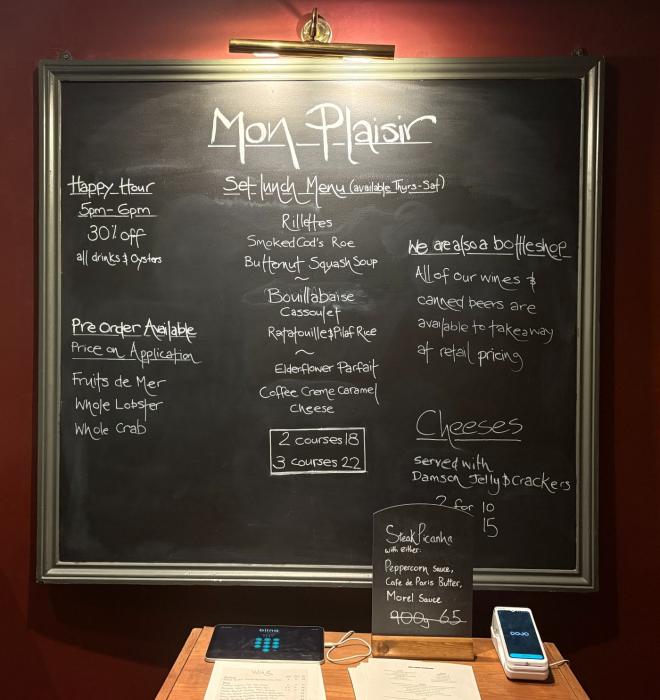 Mon Plaisir
Happy Hour
5pm-6pm
30% off
all drinks & Oysters
Pre Order Available
Price on Application
Fruits de Mer
Whole Lobster
Whole Crab
Set lunch Menu (available Thurs-Sat)
Rillettes
Smoked Cod's Roe
Butternut Squash Soup
~
Bouillabaise
Cassoulet
Ratatouille & Pilaf Rice
~
Elderflower Parfait
Coffee Creme Caramel
Cheese
2 courses 18
3 courses 22
We are also a bottleshop
All of our wines &
canned beers are
available to takeaway
at retail pricing
Cheeses
served with
Damson Jelly & Crackers
2 for 10
15
Steak Picanha
with either:
Peppercorn sauce,
Cafe de Paris Butter,
Morel Sauce
900g 65
DOJO